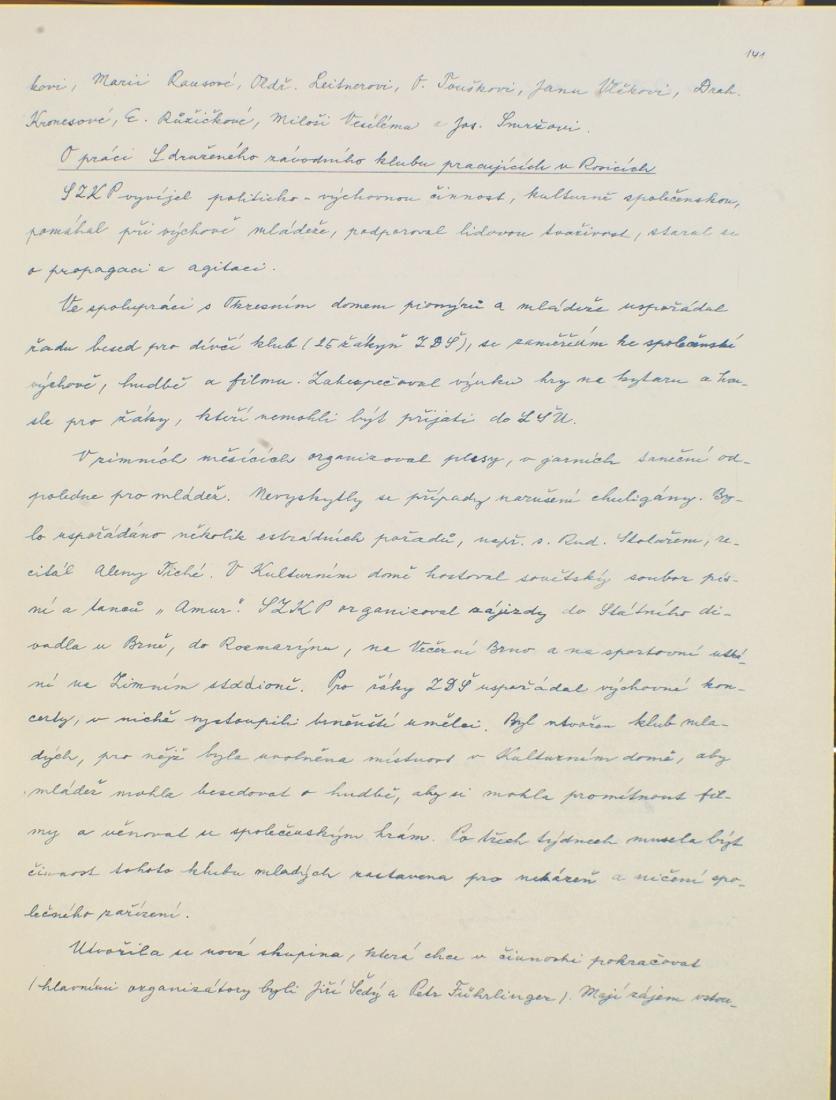 141
kovi, Marii Rausové, Oldř. Leitnerovi, O. Touškovi, Janu Vlčkovi, Drah.
Kronesové, E. Růžičkové, Miloši Veselému a Jos. Smržovi.
O práci Sdruženého závodního klubu pracujících v Rosicích
SZKP vyvíjel politicko-výchovnou činnost, kulturně společenskou,
pomáhal při výchově mládeže, podporoval lidovou tvořivost, staral se
o propagaci a agitaci.
Ve spolupráci s Okresním domem pionýrů a mládeže uspořádal
řadu besed pro dívčí klub (25 žákyň ZDŠ), se zaměřením ke společenské
výchově, hudbě a filmu. Zabezpečoval výuku hry na kytaru a hou-
sle pro žáky, kteří nemohli být přijati do LŠU.
V zimních měsících organizoval plesy, v jarních taneční od-
poledne pro mládež. Nevyskytly se případy narušení chuligány. By-
lo uspořádáno několik estrádních pořadů, např. s Rud. Stolařem, re-
citál Aleny Tiché. V Kulturním domě hostoval sovětský soubor pís-
ní a tanců „Amur". SZKP organizoval zájezdy do Státního di-
vadla v Brně, do Rozmarýnu, na Večerní Brno a na sportovní utká-
ní na Zimním stadioně. Pro žáky ZDŠ uspořádal výchovné kon-
certy, v nichž vystoupili brněnští umělci. Byl utvořen klub mla-
dých, pro nějž byla uvolněna místnost v Kulturním domě, aby
mládež mohla besedovat o hudbě, aby si mohla promítnout fil-
my a věnovat se společenským hrám. Po třech týdnech musela být
činnost tohoto klubu mladých zastavena pro nekázeň a ničení spo-
lečného zařízení.
Utvořila se nová skupina, která chce v činnosti pokračovat
(hlavními organizátory byli Jiří Šedý a Petr Führlinger). Mají zájem vstou-